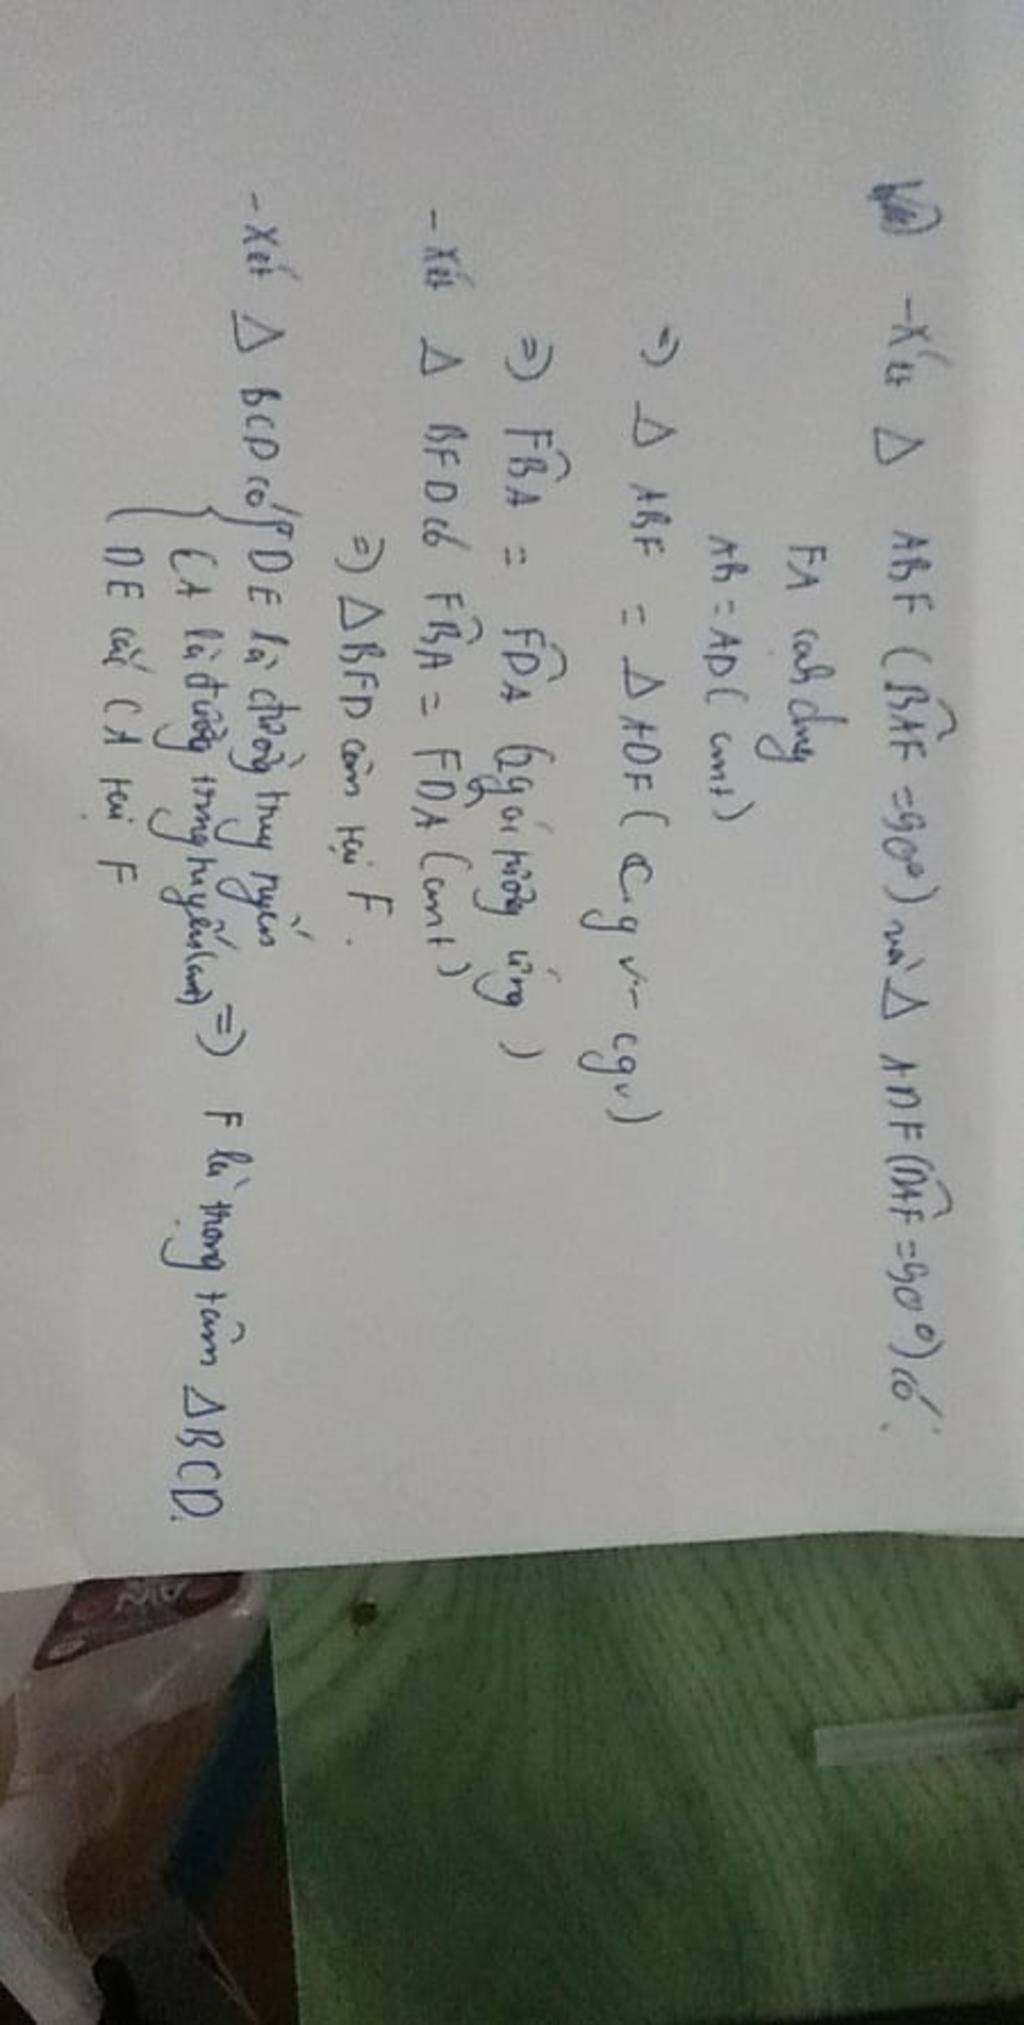 - Xét Δ ABF (BÂF = 90°) và Δ ADF (DÂF = 90°) có:
FA cạh chug
AB = AD (cmt)
=) Δ ABF = Δ ADF (cgv - cgv)
=) FB̂A = FD̂A (2 góc tương ứng)
- Xét Δ BFD có FB̂A = FD̂A (cmt)
=) Δ BFD cân tại F.
- Xét Δ BCD có { DE là đường trug tuyến
CA là đường trung tuyến (cmt) =) F là trọng tâm Δ BCD.
DE cắt CA tại F